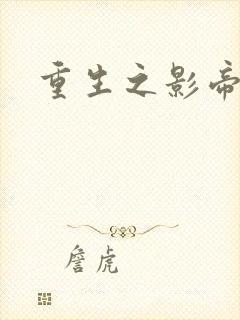 重生之影帝
詹虎